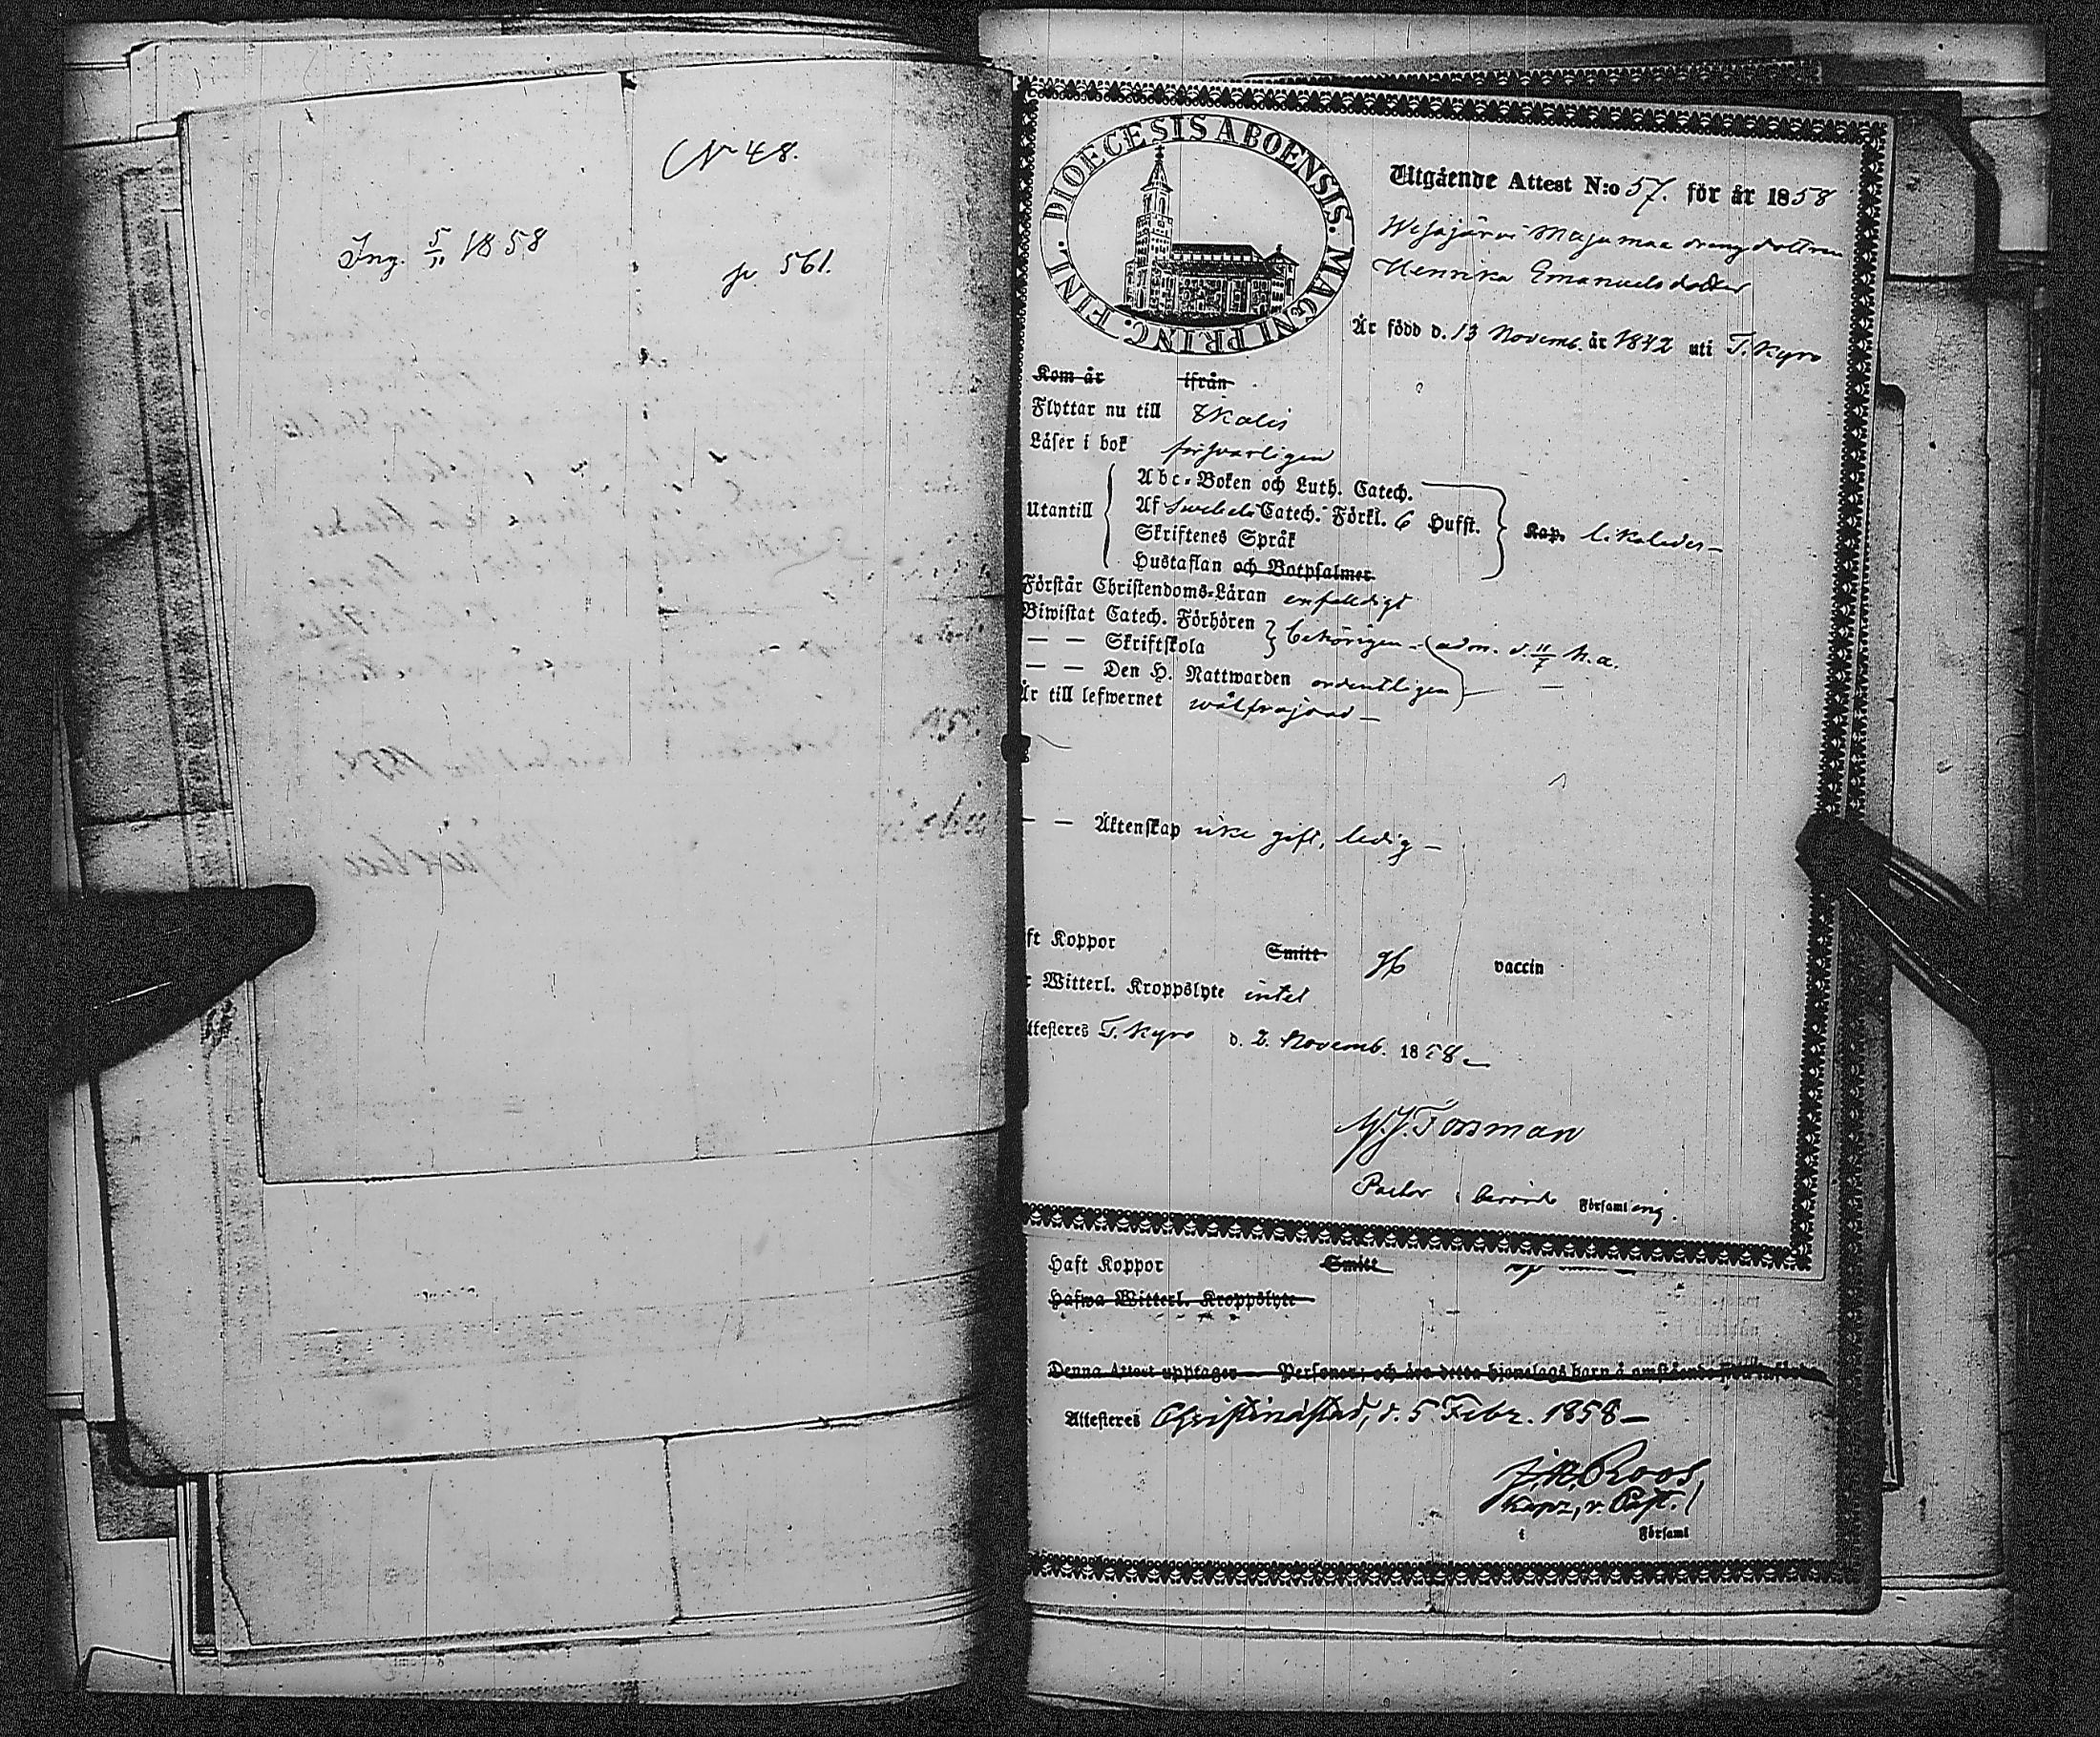 N 48.
Ing. 5/11 1858
p 561.
DIOECESIS ABOENSIS. MAGNI PRINC. FINL.
Utgående Attest N:o 57. för år 1858
Wesajärvi Majamaa drengdottren
Henrika Emanuelsdotter
Är född d. 13 Novemb. år 1842 uti T. Kyro
Kom år ifrån
Flyttar nu till Ikalis
Läser i bok försvarligen
Abc-Boken och Luth. Catech.
Utantill Af Svebeli Catech. Förkl. 6 Hufst. Kap. likaledes —
Skriftenes Språk
Hustaflan och Botpsalmer
Förstår Christendoms-Läran enfaldigt
Biwistat Catech. Förhören behörigen
— — Skriftskola adm. d. 11/7 h.a.
— — Den H. Nattwarden ordentligen —
Är till lefwernet wälfrejdad —
— — Äktenskap icke gift, ledig —
ft Koppor Smitt gb vaccin
Witterl. Kroppslyte intet
ttesteres T. Kyro d. 2. Novemb. 1858
Forsman
Pastor i berörde Församling.
Haft Koppor Smitt
Hafwa Witterl. Kroppslyte
Denna Attest upptager Personer; och äro detta hjonelags barn å omstående
Attesteres Christinæstad, d. 5 Febr. 1858 —
Roos,
Kapz, v. Past.
i Församl